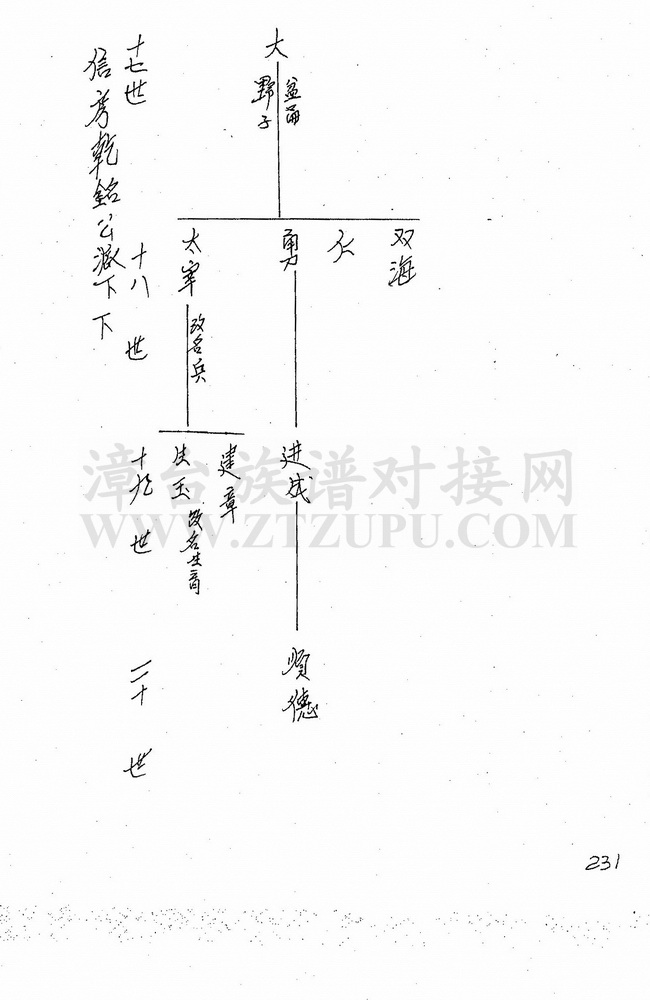 十七世
大
野子
信房乾銘公派下下
十八世
太宰
改名兵
勇
仁
双海
十九世
生玉
改名生育
建章
进成
二十世
顺德
231
漳台族谱对接网
WWW.ZTZUPU.COM